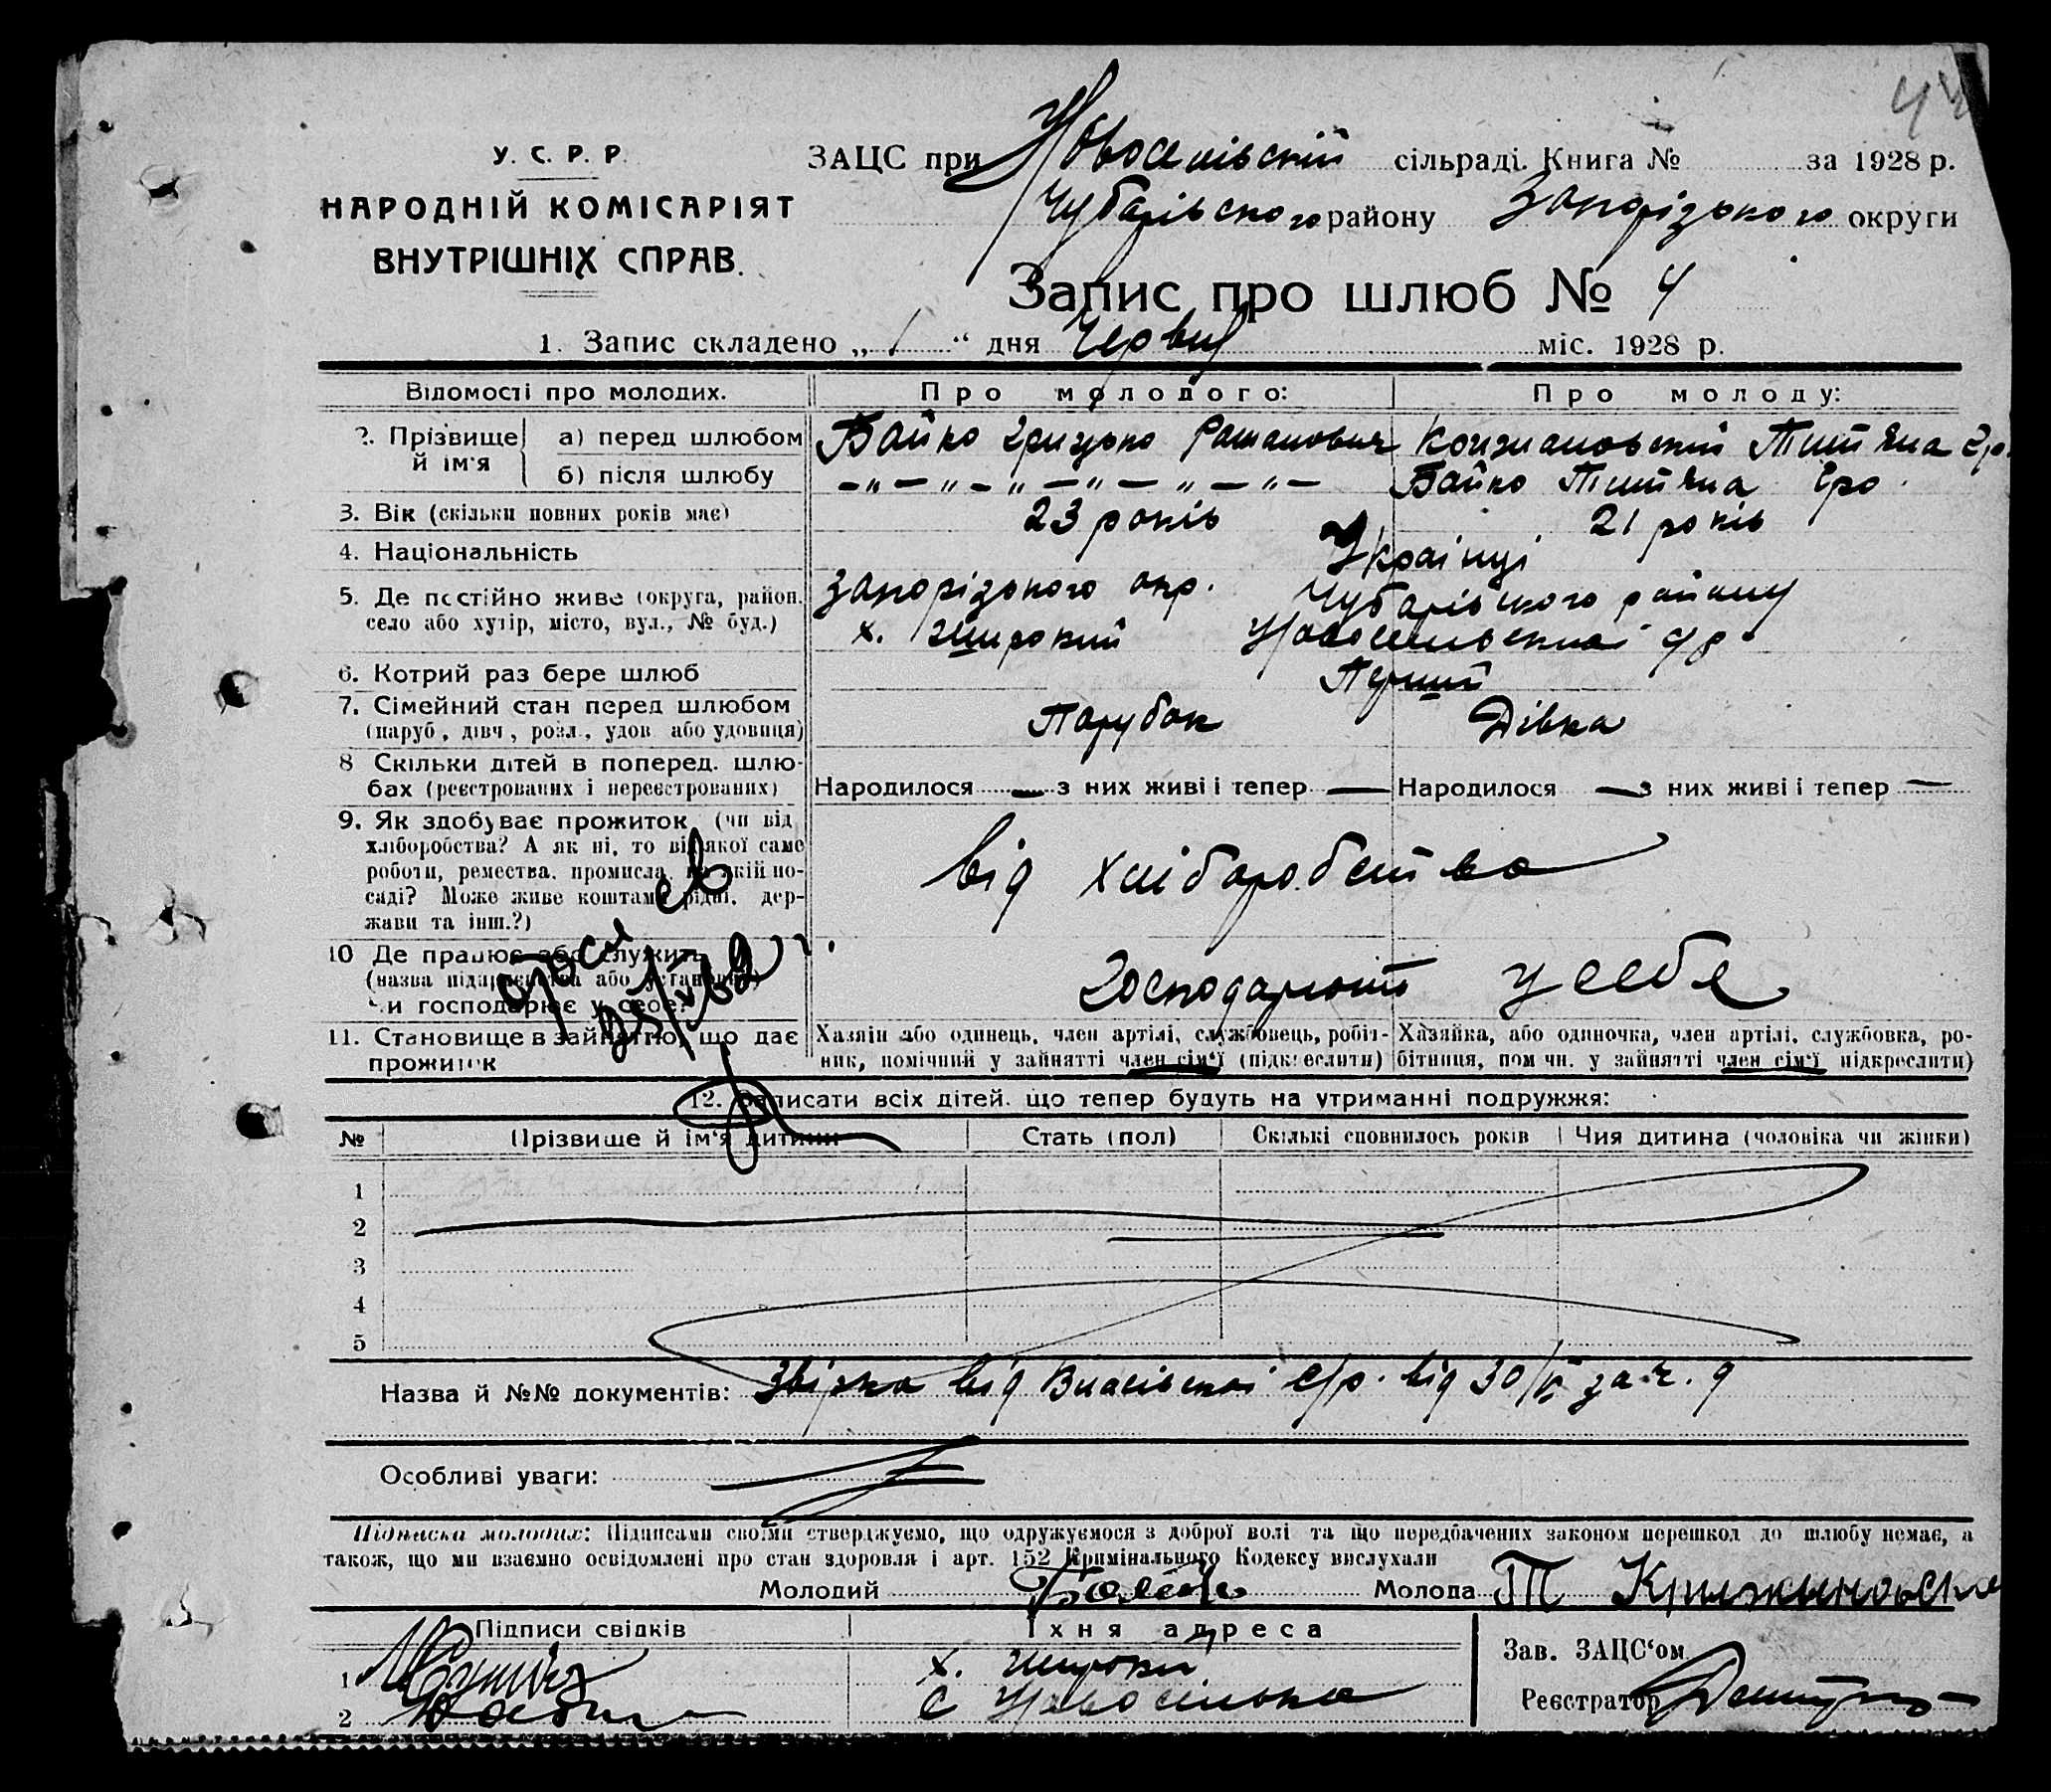 44
У. С. Р. Р.
НАРОДНІЙ КОМІСАРІЯТ
ВНУТРІШНІХ СПРАВ.
ЗАЦС при Новоселівскій сільраді. Книга № за 1928 р.
Чубарівського району Запорізького округи
Запис про шлюб № 4
1. Запис складено „ 1 “ дня Червня міс. 1928 р.
Відомості про молодих. Про молодого: Про молоду:
2. Прізвище й ім'я
а) перед шлюбом Бойко Грицько Раманович Титяна Гр.
б) після шлюбу –„–„–„–„–„–„– Бойко Титяна Гро.
3. Вік (скільки повних років має) 23 років 21 років
4. Національність Українці
5. Де постійно живе (округа, район, Запорізького окр. Чубарівського району
село або хутір, місто, вул., № буд.) х. Широкий с/р
6. Котрий раз бере шлюб Перший
7. Сімейний стан перед шлюбом Парубок Дівка
(паруб., дівч., розл., удов. або удовиця)
8 Скільки дітей в поперед. шлюбах (реєстрованих і нереєстрованих) Народилося — з них живі і тепер — Народилося — з них живі і тепер —
9. Як здобуває прожиток (чи від
хліборобства? А як ні, то від якої саме
роботи, ремества, промисла, на якій по-
саді? Може живе коштами рідні, дер-
жави та інш.?)
від хліборобства
10 Де працює або служить
(назва підприємства або установи)
чи господарює у себе?
Господарюють у себе
11. Становище в занятті, що дає
прожиток
Хазяін або одинець, член артілі, службовець, робіт-
ник, помічний у зайнятті член сім'ї (підкреслити)
Хазяйка, або одиночка, член артілі, службовка, ро-
бітниця, пом чн. у зайнятті член сім'ї підкреслити)
12. Записати всіх дітей, що тепер будуть на утриманні подружжя:
№ Прізвище й ім'я дитини Стать (пол) Скількі сповнилось років Чия дитина (чоловіка чи жінки)
1
2
3
4
5
Назва й №№ документів: від Власівскої с/р. від 30/V за ч. 9
Особливі уваги:
Підписка молодих: Підписами своїми стверджуємо, що одружуємося з доброї волі та що передбачених законом перешкод до шлюбу немає, а
також, що ми взаємно освідомлені про стан здоровля і арт. 152 Кримінального Кодексу вислухали
Молодий Молода Т
Підписи свідків Їхня адреса
1 х. Широкий
2 с Новосілька
Зав. ЗАЦС'ом
Реєстратор